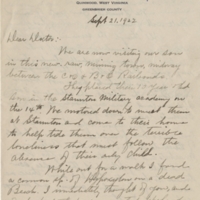 GLENDENIN, WEST VIRGINIA
Sept 21, 1922
Dear Doctor:-
We are now visiting our son
in this new, new mining town, midway
between the C. & O. & B & O Railroads.
They placed their 10 year old
son in the Staunton Military academy on
the 14th. We motored down & met them
at Staunton and came to their home to
help tide them over the terrible
loneliness that must follow the
absence of their only child.
While out for a walk I found
a
on a dead
Beech. I immediately thought of you and